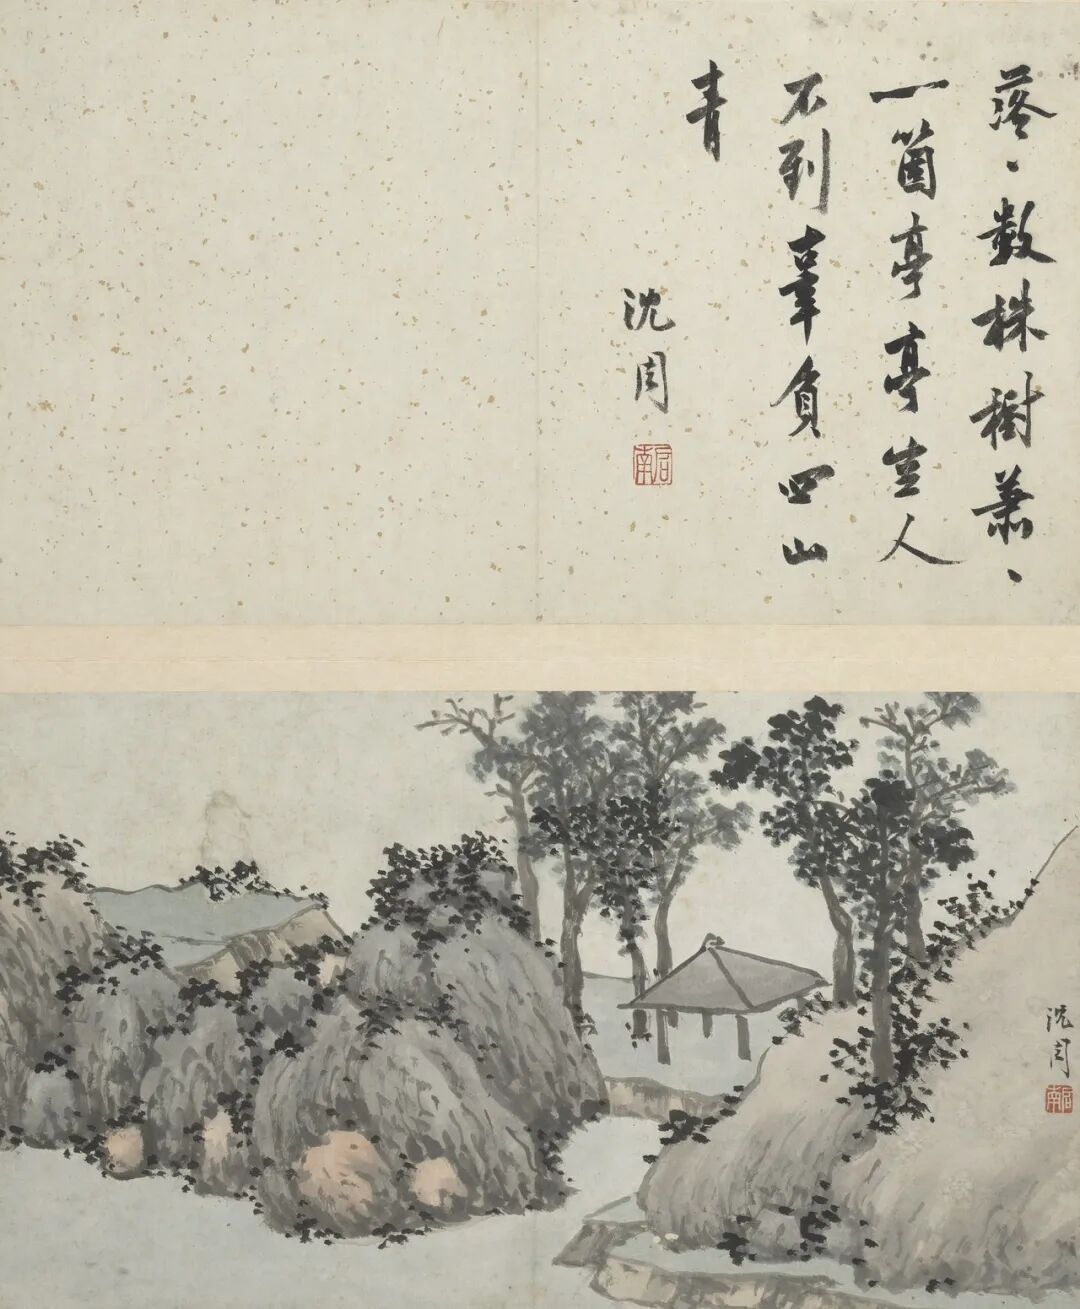 落、數株樹蕭、
一箇亭亭坐人
不到辜負四山
青
沈周
启南
沈周
启南